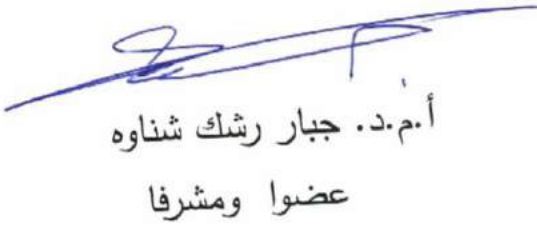 أ.م.د. جبار رشك شناوه
عضوا ومشرفا